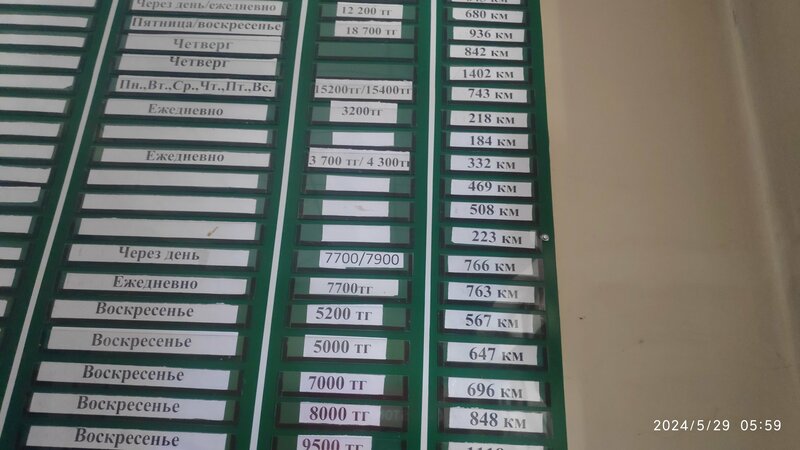 Через день/ежедневно 12 200 тг
680 км
Пятница/воскресенье 18 700 тг 936 км
Четверг 842 км
Четверг 1402 км
Пн.,Вт.,Ср.,Чт.,Пт.,Вс. 15200тг/15400тг 743 км
Ежедневно 3200тг 218 км
184 км
Ежедневно 3 700 тг/ 4 300тг 332 км
469 км
508 км
223 км
Через день 7700/7900 766 км
Ежедневно 7700тг 763 км
Воскресенье 5200 тг 567 км
Воскресенье 5000 тг 647 км
Воскресенье 7000 тг 696 км
Воскресенье 8000 тг 848 км
Воскресенье 9500 тг
2024/5/29 05:59